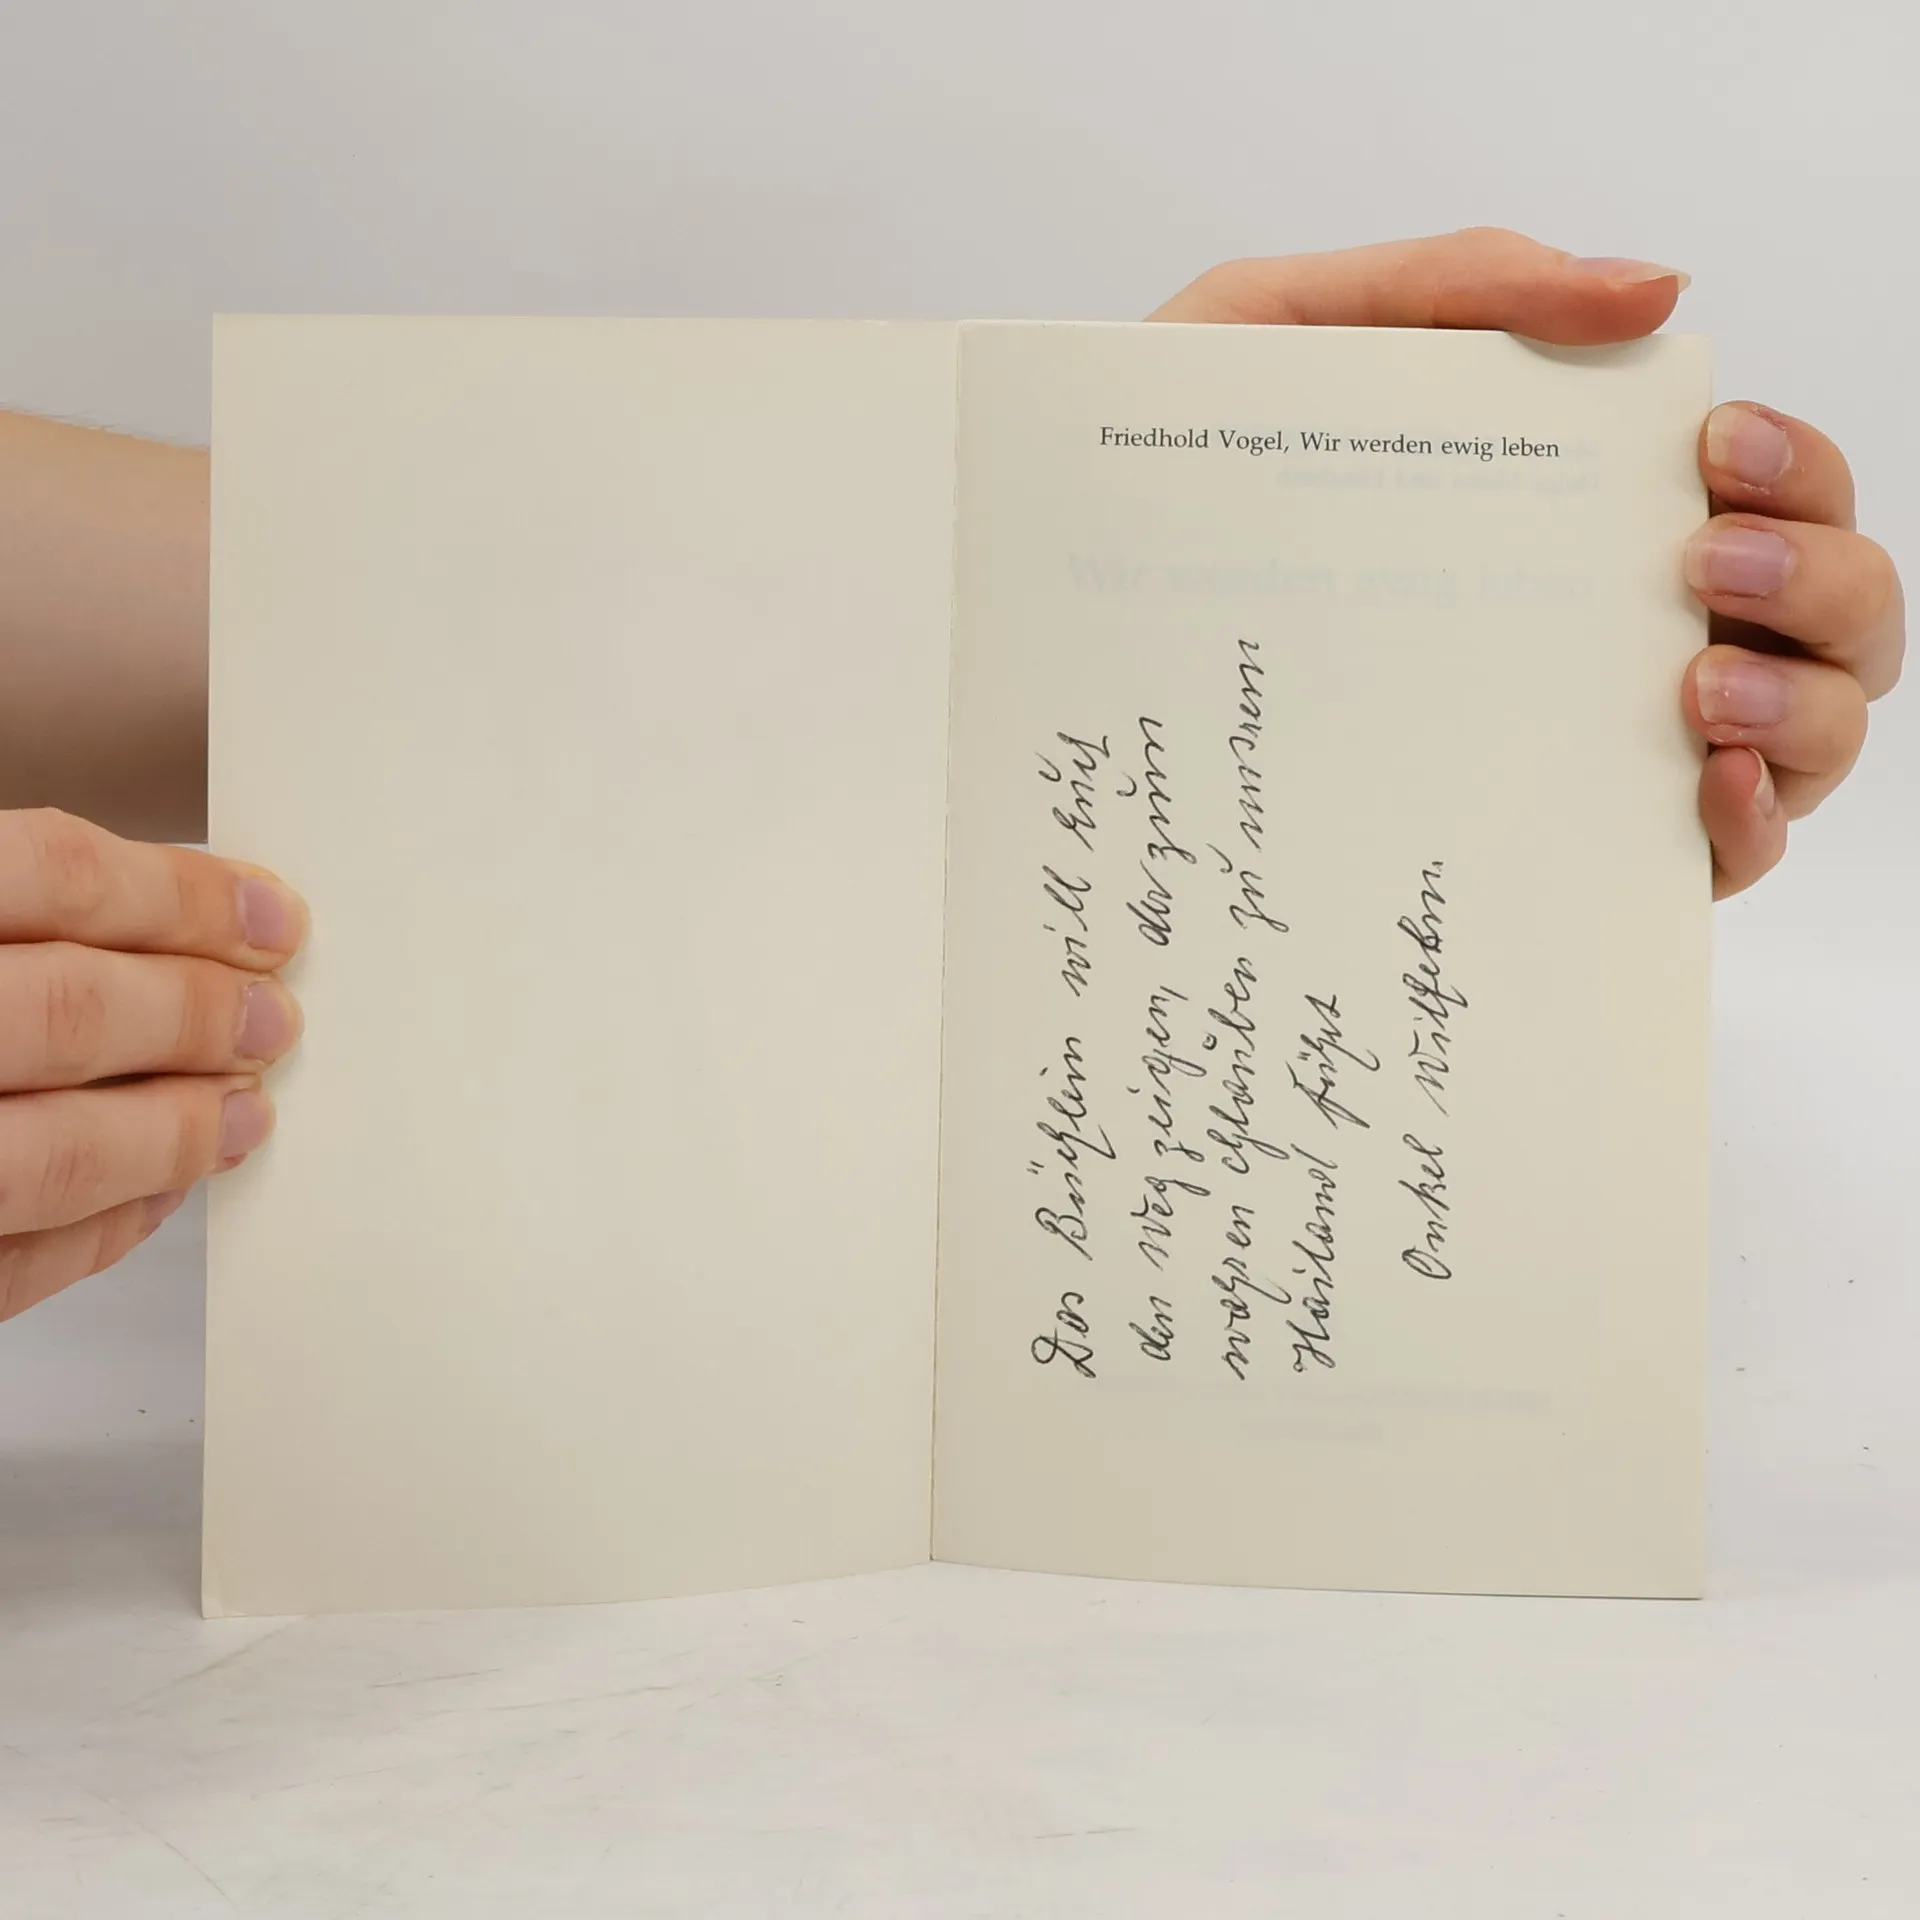 Friedhold Vogel, Wir werden ewig leben
Das Büchlein will Euch
den Weg zeigen, der zum
wahren Glauben zu unserem
Heiland führt
Onkel Wilhelm.